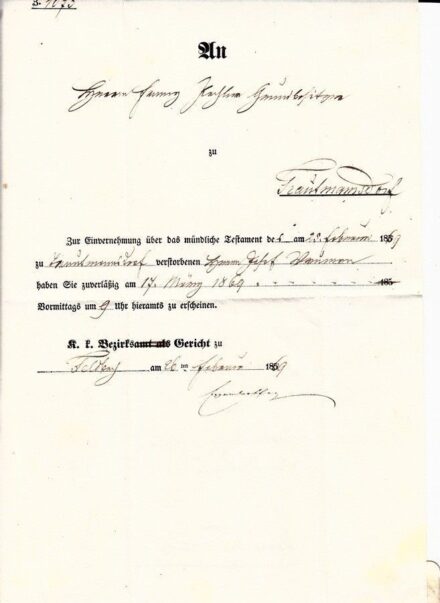 An
Herrn Franz Grundbesitzer
zu
Trautmannsdorf
Zur Einvernehmung über das mündliche Testament des am Februar 1869
zu Trautmansdorf verstorbenen Herrn Josef
haben Sie zuverläßig am 17. März 1869 185
Vormittags um 9 Uhr hieramts zu erscheinen.
K. k. Bezirksamt als Gericht zu
Feldbach am 26 ten Februar 1869